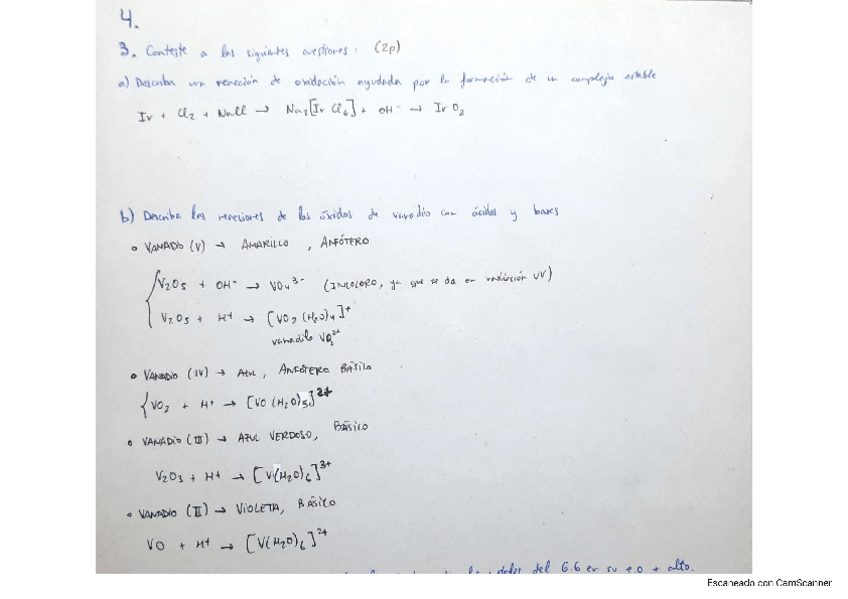 4.
3. Conteste a las siguientes cuestiones: (2p)
a) Describa una reacción de oxidación ayudada por la formación de un complejo estable
Ir + Cl₂ + NaCl → Na₂[Ir Cl₆] + OH⁻ → Ir O₂
b) Describa las reacciones de los óxidos de vanadio con ácidos y bases
• VANADIO (V) → AMARILLO, ANFÓTERO
V₂O₅ + OH⁻ → VO₄³⁻ (INCOLORO, ya que se da en radiación UV)
V₂O₅ + H⁺ → [VO₂(H₂O)₄]⁺
vanadilo
• VANADIO (IV) → AZUL, ANFÓTERO BÁSICO
VO₂ + H⁺ → [VO(H₂O)₅]²⁺
• VANADIO (III) → AZUL VERDOSO, BÁSICO
V₂O₃ + H⁺ → [V(H₂O)₆]³⁺
• VANADIO (II) → VIOLETA, BÁSICO
VO + H⁺ → [V(H₂O)₆]²⁺
del G.6 en su e.o + alto.
Escaneado con CamScanner